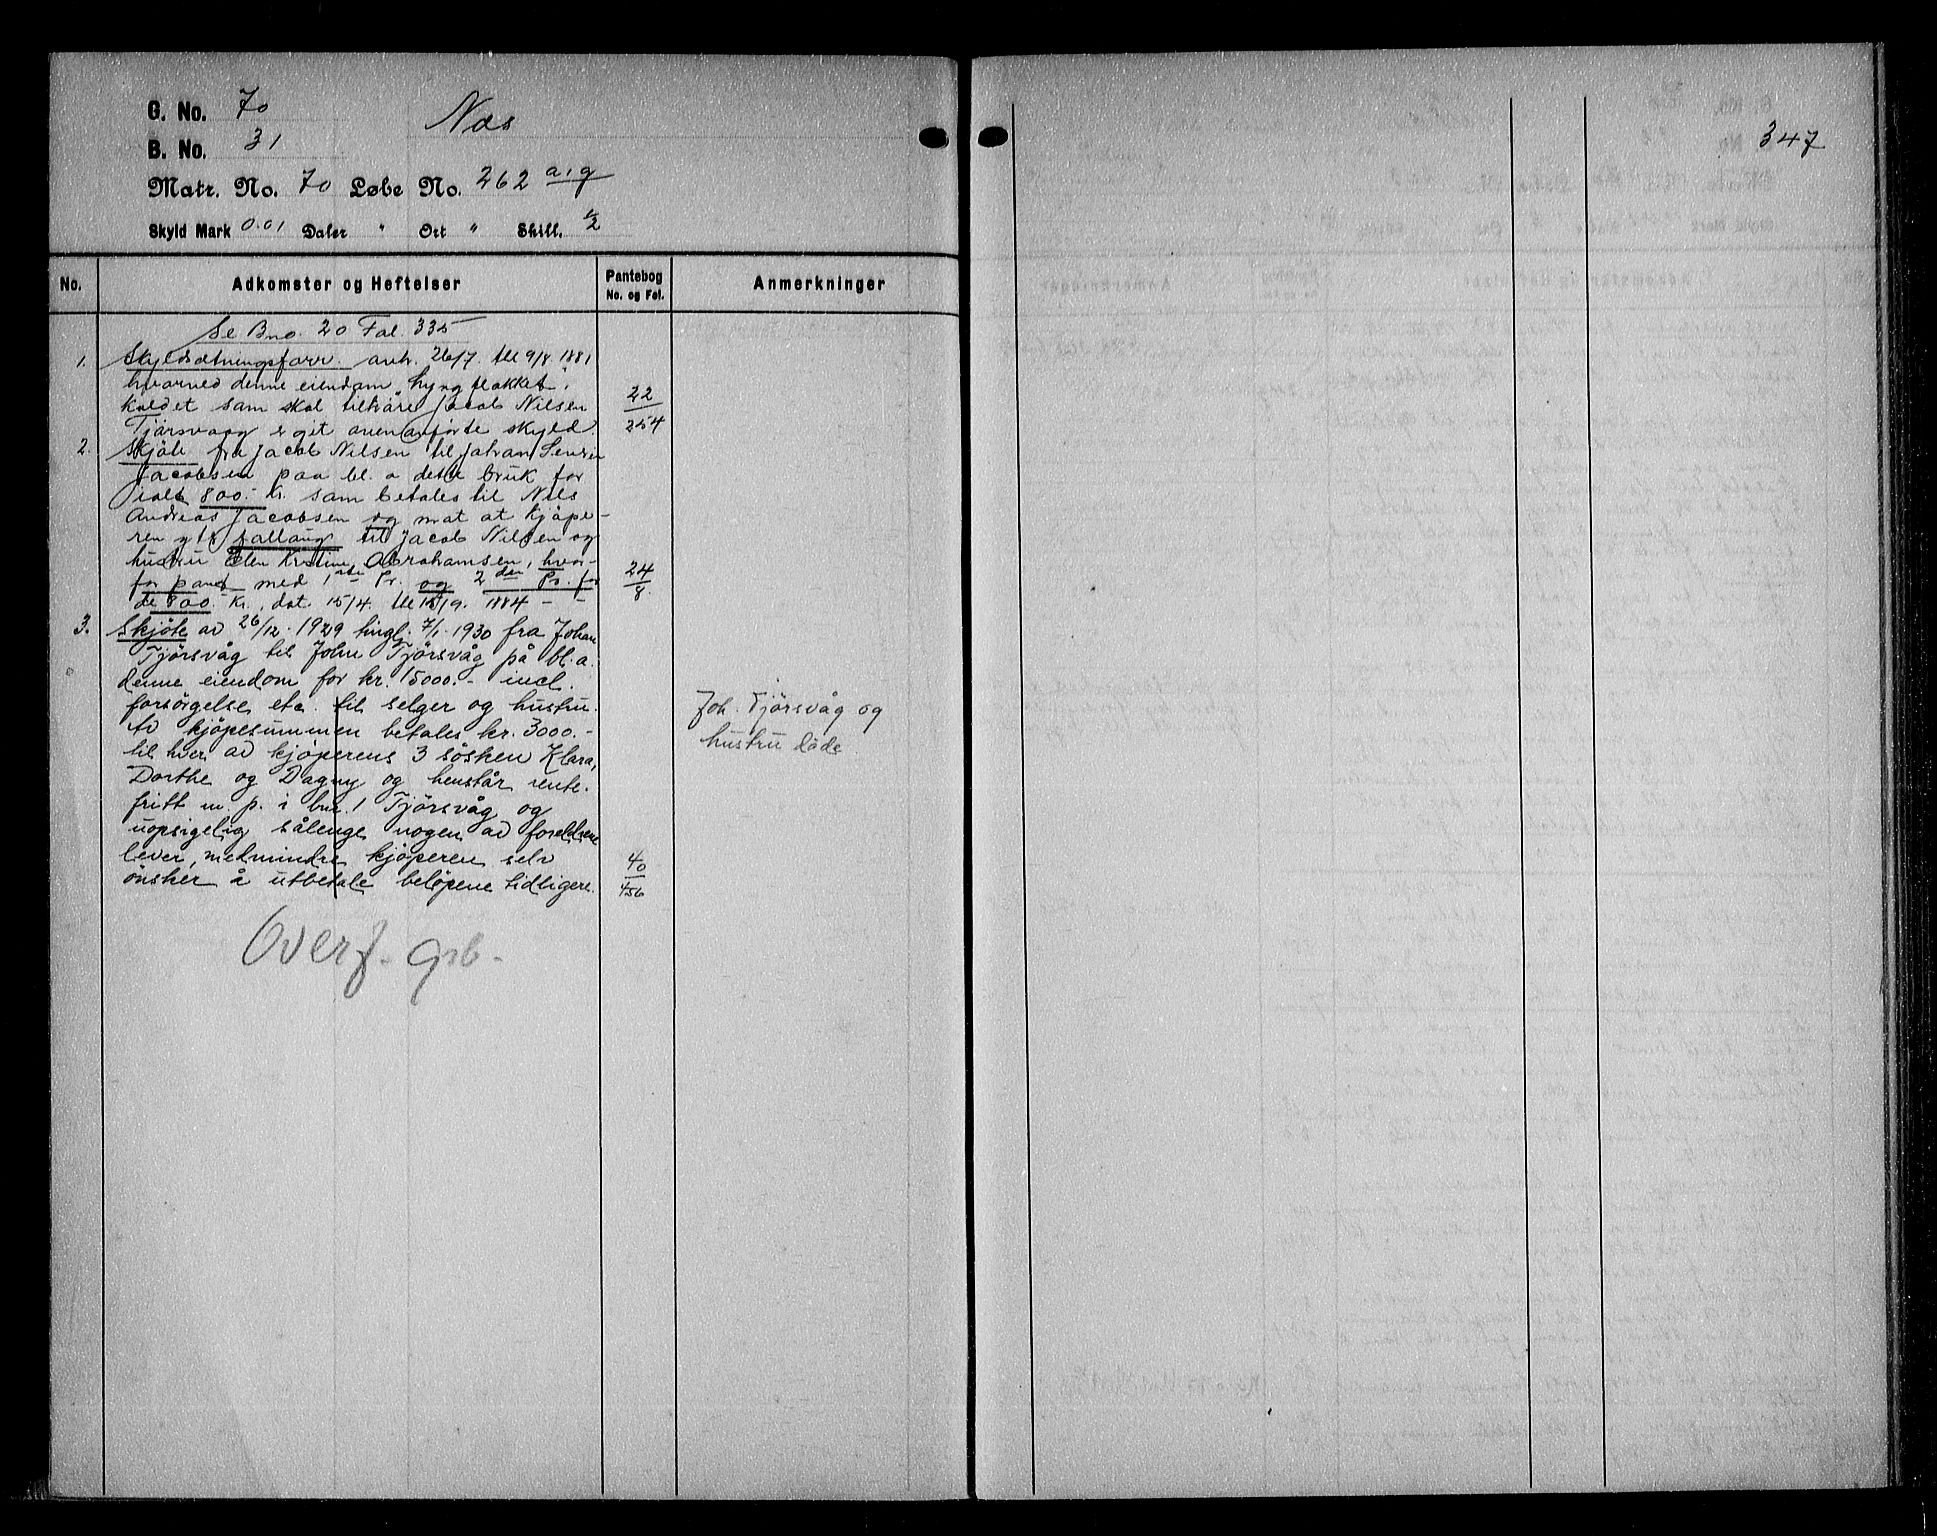 G. No. 70
Næs
B. No. 31
Matr. No. 70 Løbe No. 262 a,g
Skyld Mark 0.01 Daler " Ort " Skill. ½
No. Adkomster og Heftelser Pantebog No. og Fol. Anmerkninger
347
Se Bno. 20 Fol. 335
1. Skyldsætningsforr. avh. 26/7. tll 9/8 1881
hvorved denne eiendom, Lyngflekket i
kaldet som skal tilhøre Jacob Nilsen
Tjörsvaag er git ovenanførte skyld. 22/254
2. Skjöte fra Jacob Nilsen til Johan
Jacobsen paa bl. a dette bruk for
ialt 800.- Kr. som betales til Nils
Andreas Jacobsen og mot at kjøpe-
ren yter følaug til Jacob Nilsen og
hustru Elen Kristine Abrahamsen, hvor-
for pant med 1ste Pr. og 2den Pr. for
de 800.- Kr., dat. 15/4. tll 15/9. 1884 - - 24/8.
3. Skjöte av 26/12. 1929 tingl. 7/1. 1930 fra Johan
Tjörsvåg til John Tjörsvåg på bl.a.
denne eiendom for kr. 15000.- incl.
forsörgelse etc. til selger og hustru.
Av kjöpesummen betales kr. 3000.-
til hver av kjöperens 3 sösken Klara,
Dorthe og Dagny og henstår rente-
fritt m. p. i bnr. 1 Tjörsvåg og
uopsigelig sålenge nogen av foreldrene
lever, medmindre kjöperen selv
önsker å utbetale belöpene tidligere. 40/456
Joh. Tjörsvåg og
hustru döde.
Overf. grb.